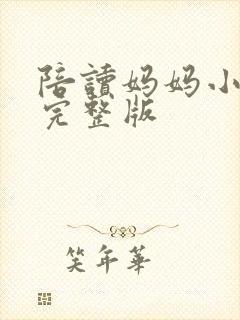 陪讀妈妈小
完整版
笑年華